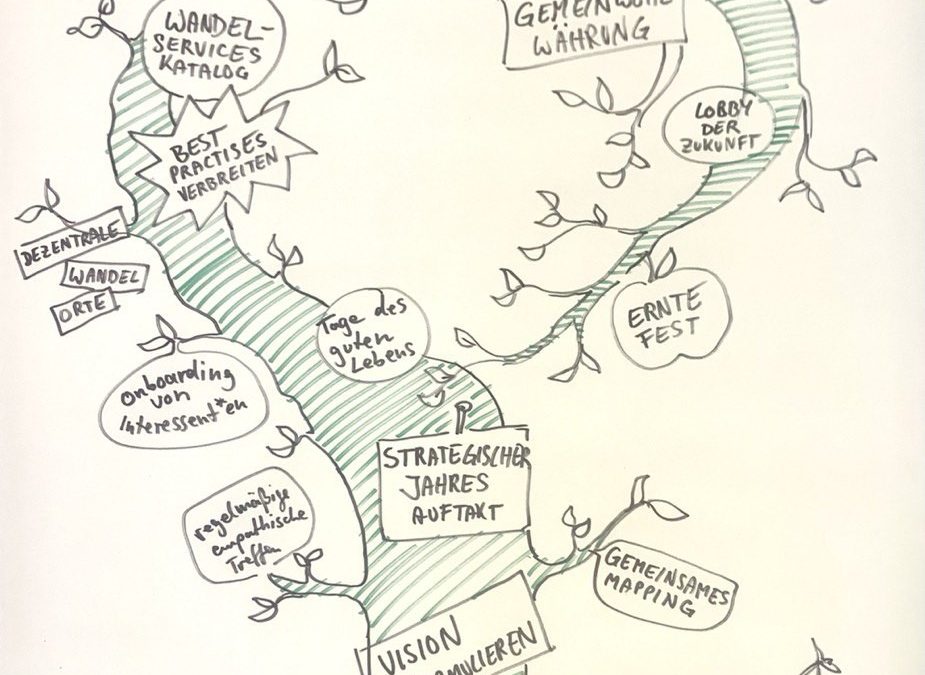 WANDEL-
SERVICES
KATALOG
GEMEINWOHL
WÄHRUNG
BEST
PRACTISES
VERBREITEN
LOBBY
DER
ZUKUNFT
DEZENTRALE
WANDEL
ORTE
Tage des
guten
Lebens
ERNTE
FEST
Onboarding
von
Interessent*en
STRATEGISCHER
JAHRES
AUFTAKT
regelmäßige
empathische
Treffen
GEMEINSAMES
MAPPING
VISION